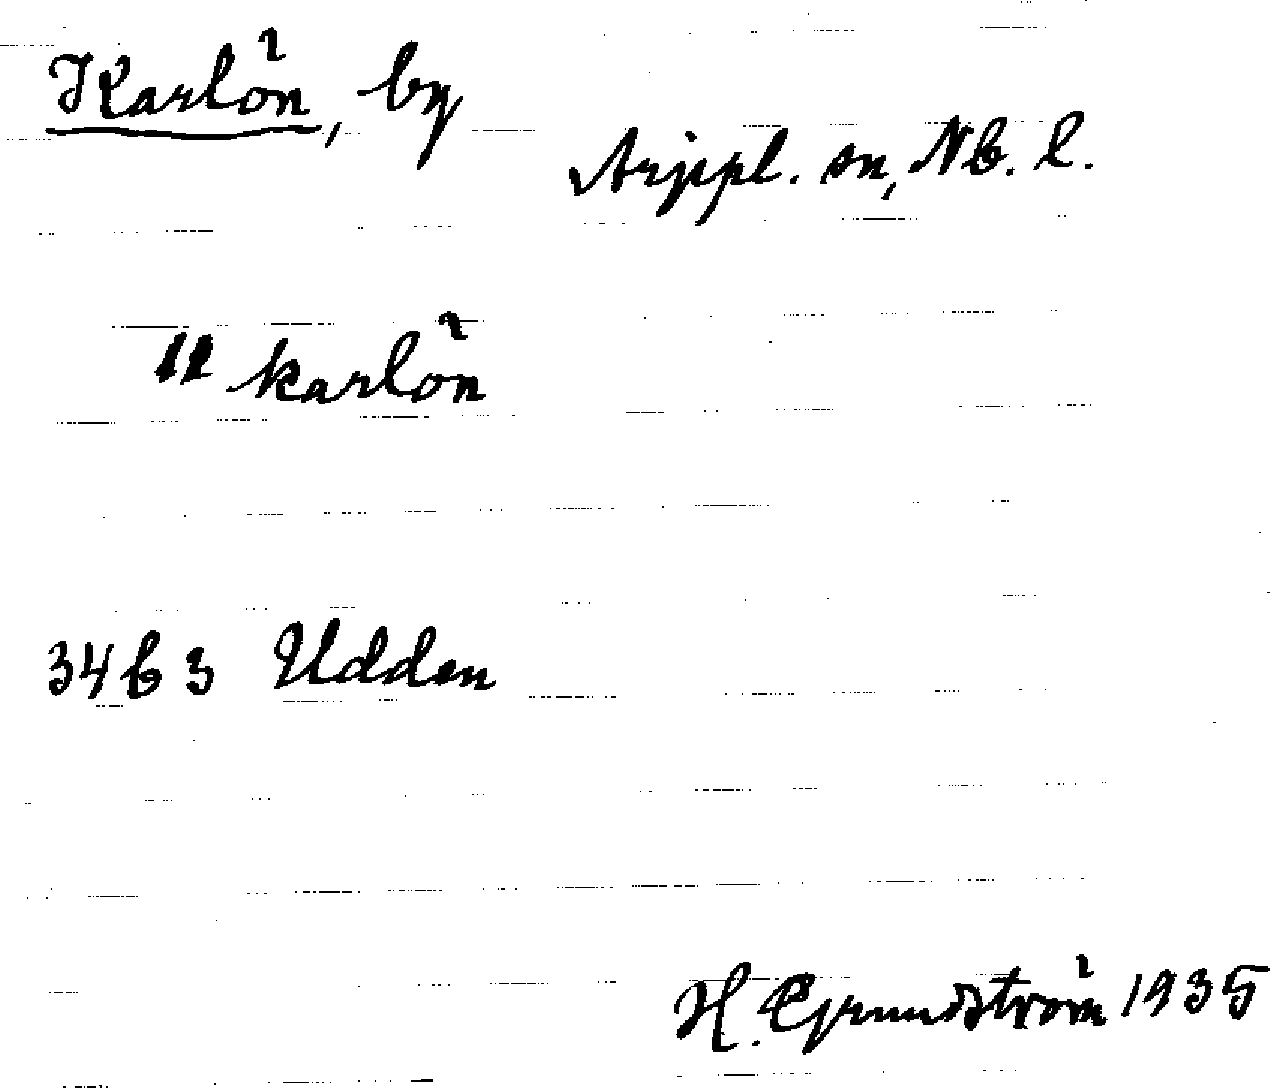 Karlön, by
Arjppl. sn, Nb. l.
11 karlön
34b3 Udden
H. Grundström 1935